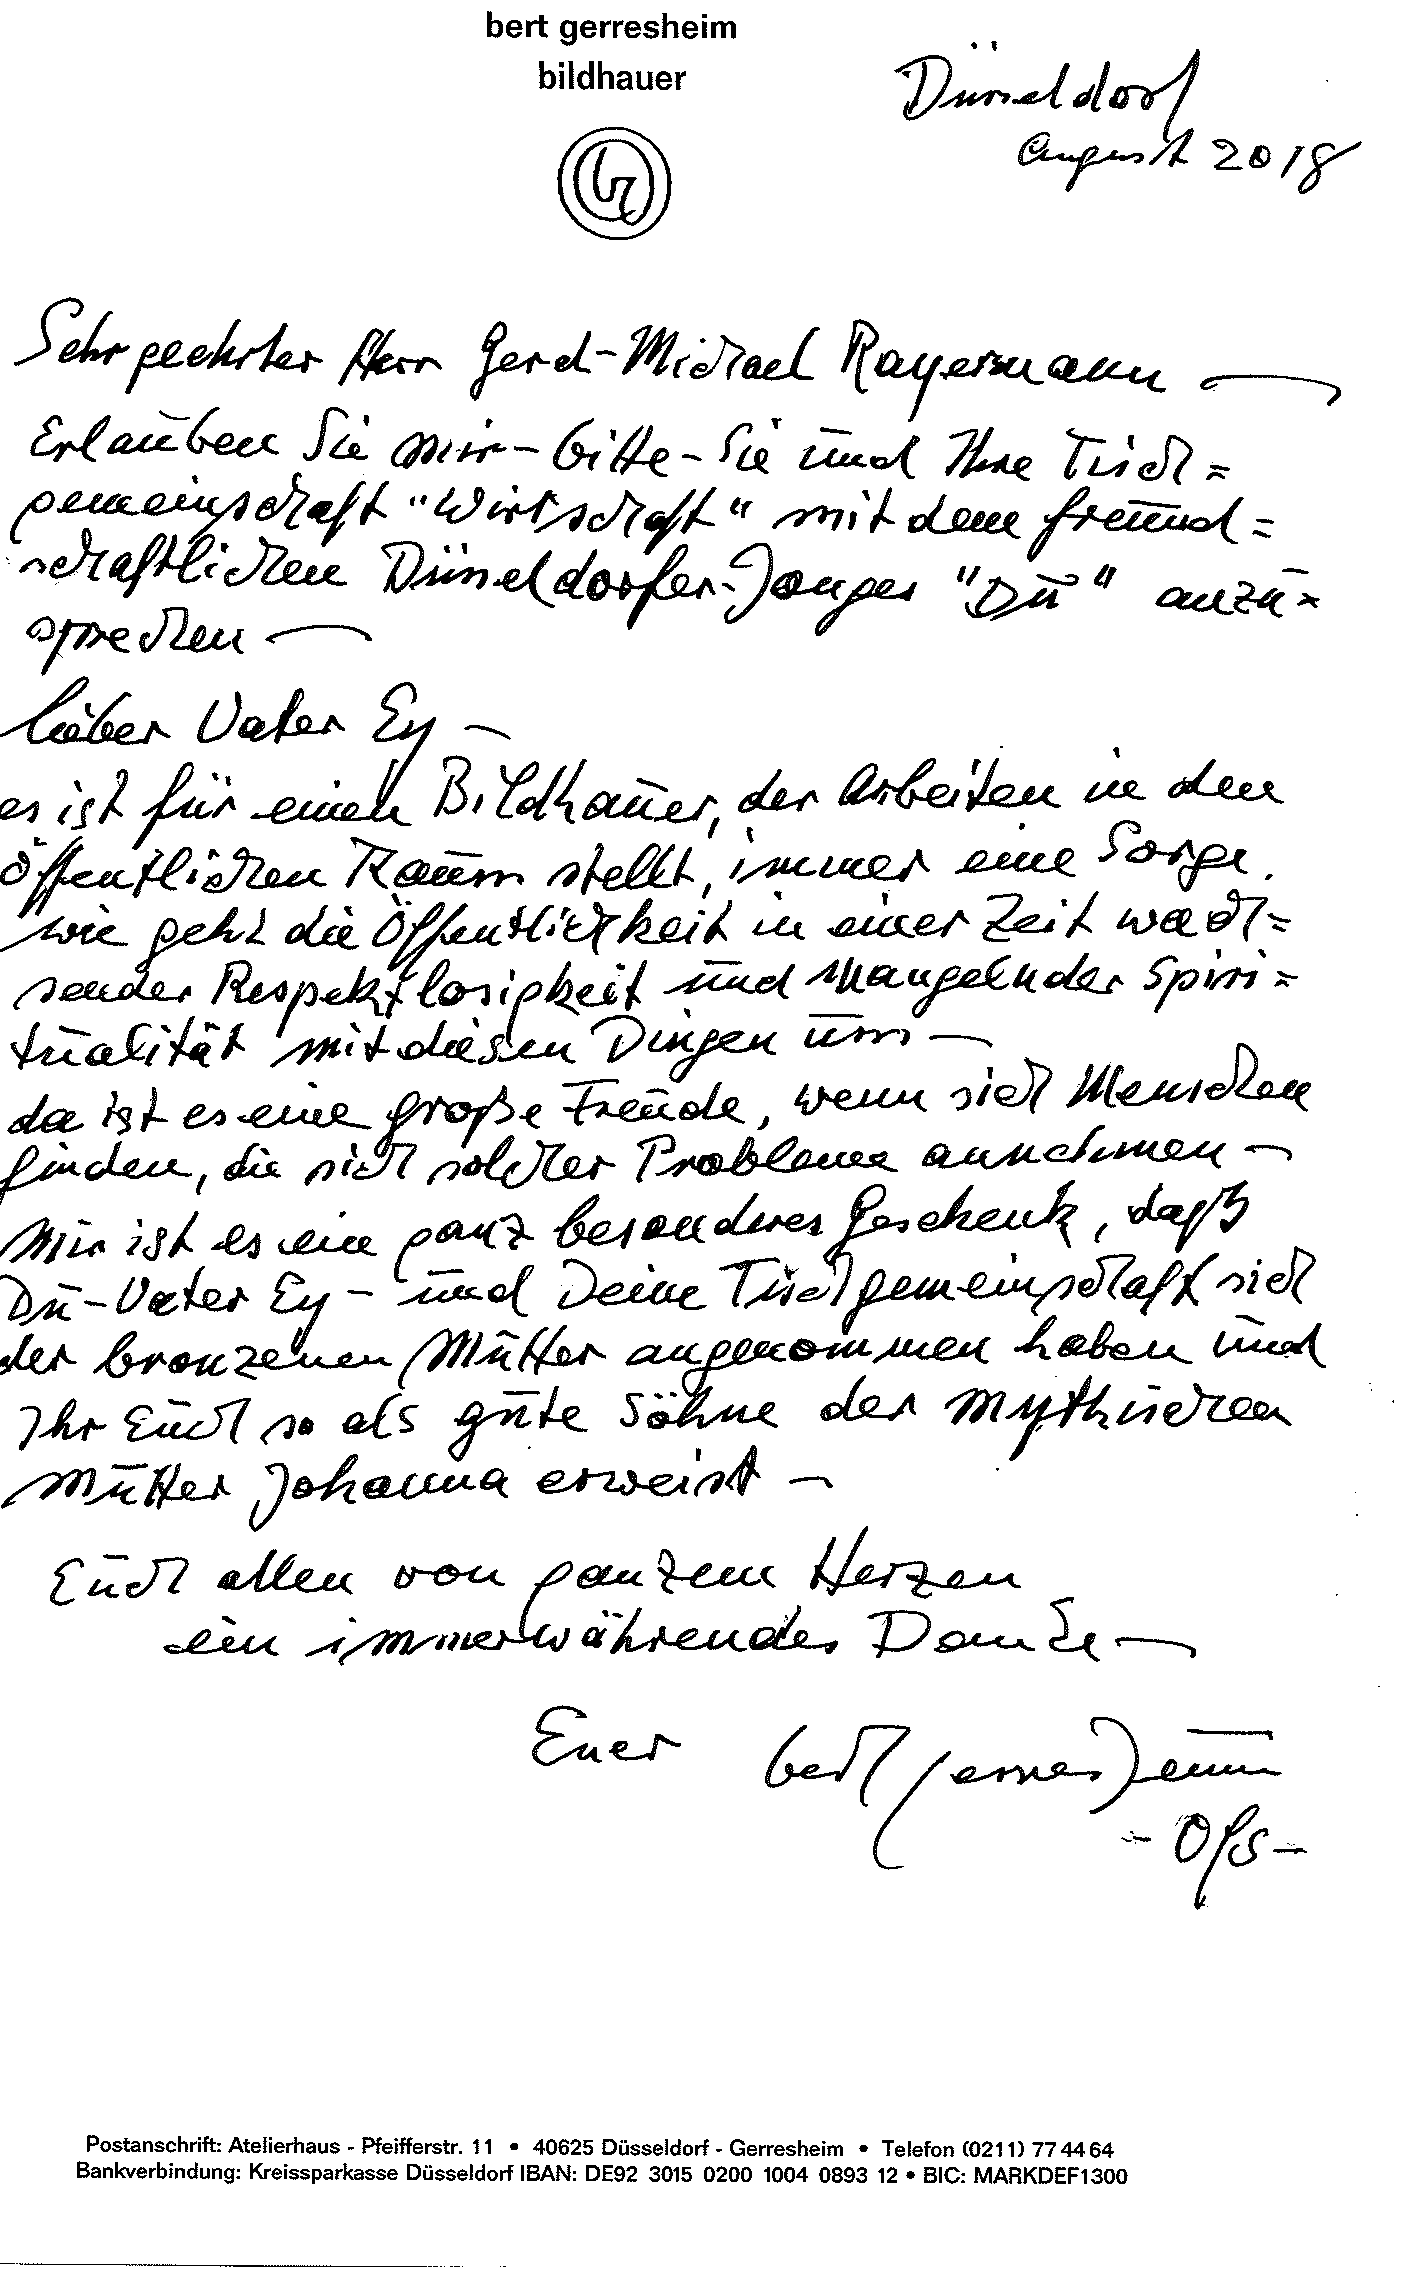 bert gerresheim
bildhauer
Düsseldorf
August 2018
Sehr geehrter Herr Gerd-Michael Rayermann —
Erlauben Sie mir – bitte – Sie und Ihre Tisch=
gemeinschaft "Wirtschaft" mit dem freund=
schaftlichen Düsseldorfer-Jonges "Du" anzu=
sprechen —
lieber Vater Ey –
es ist für einen Bildhauer, der Arbeiten in den
öffentlichen Raum stellt, immer eine Sorge.
wie geht die Öffentlichkeit in einer Zeit wach=
sender Respektlosigkeit und mangelnder Spiri=
tualität mit diesen Dingen um —
da ist es eine große Freude, wenn sich Menschen
finden, die sich solcher Probleme annehmen –
Mir ist es ein ganz besonderes Geschenk, daß
Du – Vater Ey – und Deine Tischgemeinschaft sich
der bronzenen Mutter angenommen haben und
Ihr Euch so als gute Söhne der mythischen
Mutter Johanna erweist –
Euch allen von ganzem Herzen
ein immerwährendes Danke —
Euer bert gerresheim
- OFS -
Postanschrift: Atelierhaus - Pfeifferstr. 11 • 40625 Düsseldorf - Gerresheim • Telefon (0211) 77 44 64
Bankverbindung: Kreissparkasse Düsseldorf IBAN: DE92 3015 0200 1004 0893 12 • BIC: MARKDEF1300